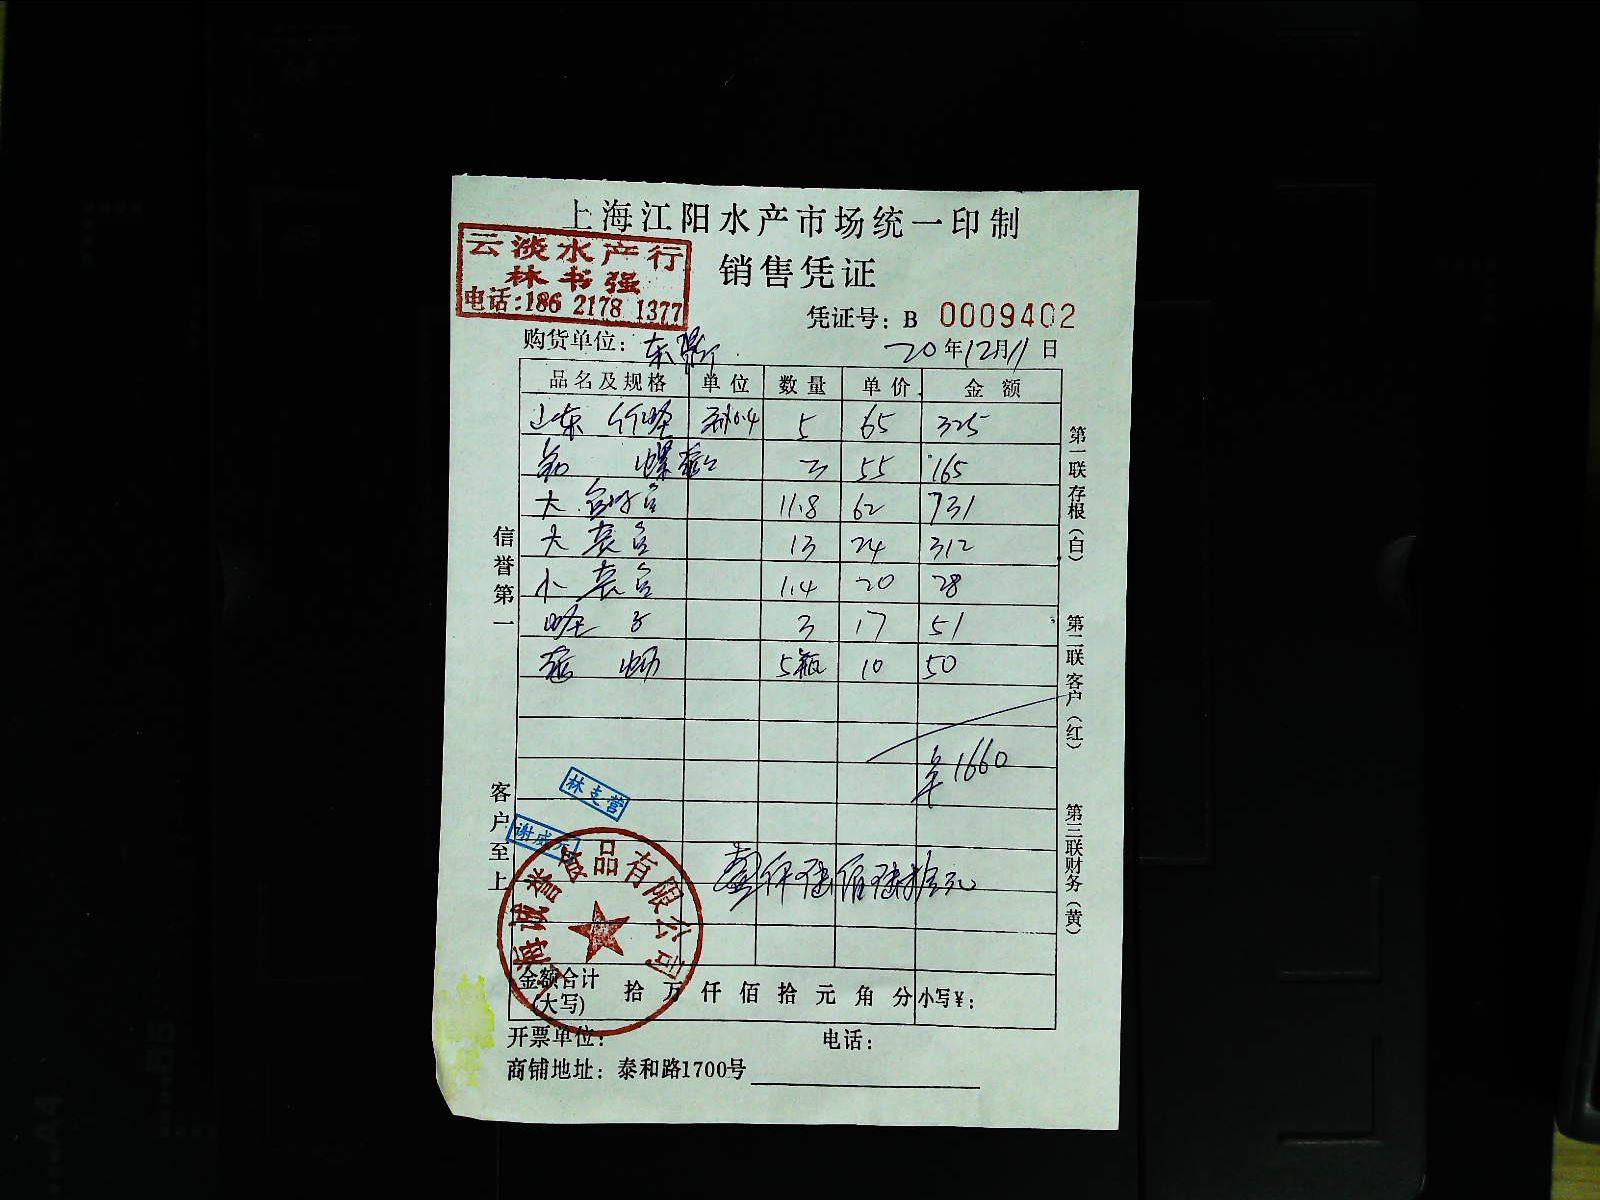 上海江阳水产市场统一印制
云淡水产行
林书强
电话:186 2178 1377
销售凭证
凭证号: B 0009402
购货单位: 东
20年12月11日
品名及规格 单位 数量 单价 金额
山东 5 65 325
螺 3 55 165
大 11.8 62 731
大 13 24 312
小 1.4 20 28
蛏子 3 17 51
5瓶 10 50
¥1660
壹仟陆佰陆拾元
信誉第一
客户至上
第一联存根(白)
第二联客户(红)
第三联财务(黄)
林支营
谢成
海诚誉食品有限公司
金额合计(大写) 拾 万 仟 佰 拾 元 角 分 小写¥:
开票单位: 电话:
商铺地址: 泰和路1700号